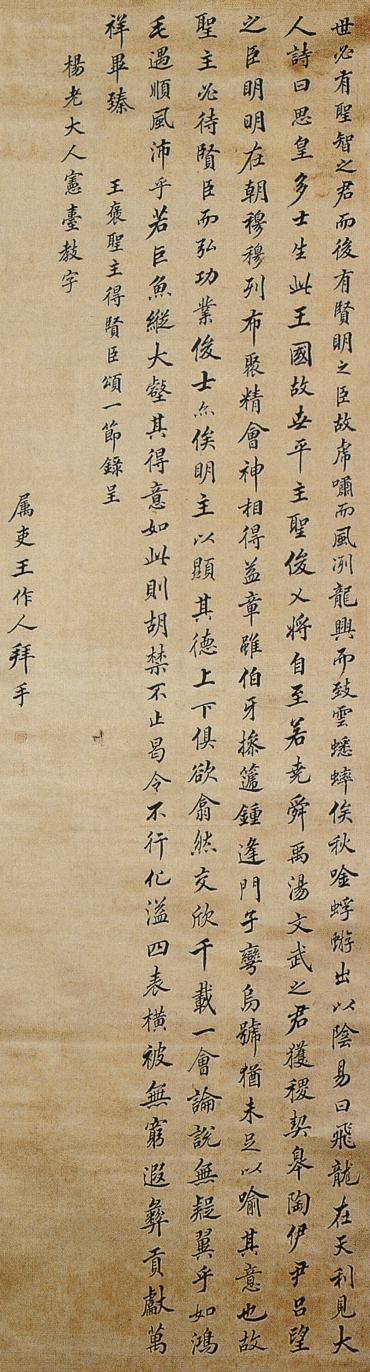 世必有聖智之君而後有賢明之臣故虎嘯而風冽龍興而致雲蟋蟀俟秋唫蜉蝣出以陰易曰飛龍在天利見大
人詩曰思皇多士生此王國故世平主聖俊乂將自至若堯舜禹湯文武之君獲稷契皋陶伊尹呂望
之臣明明在朝穆穆列布聚精會神相得益章雖伯牙操篴鍾逢門子彎烏號猶未足以喻其意也故
聖主必待賢臣而弘功業俊士亦俟明主以顯其德上下俱欲翕然交欣千載一會論說無疑翼乎如鴻
毛遇順風沛乎若巨魚縱大壑其得意如此則胡禁不止曷令不行化溢四表橫被無窮遐彝貢獻萬
祥畢臻 王褒聖主得賢臣頌一節錄呈
楊老大人憲臺教字
属吏王作人拜手